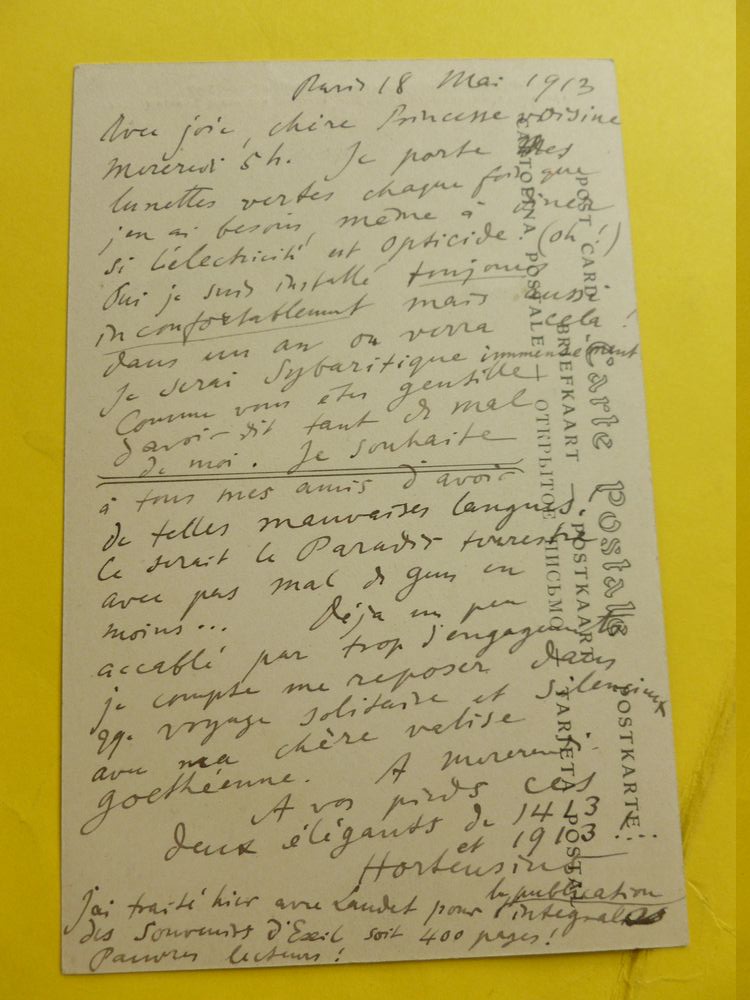 Paris 18 Mai 1913
Avec joie, chère Princesse voisine
Mercredi 5h. Je porte mes
lunettes vertes chaque fois que
j'en ai besoin, même à dîner
si l'électricité est opticide. (oh!)
Oui je suis installé toujours
inconfortablement mais aussi !
dans un an on verra cela
Je serai sybaritique immensément
Comme vous êtes gentille
d'avoir dit tant de mal
de moi. Je souhaite
à tous mes amis d'avoir
de telles mauvaises langues.
Ce serait le Paradis terrestre
avec pas mal de gens en
moins... Déja un peu
accablé par trop d'engagements
je compte me reposer dans
qq. voyage solitaire et silencieux
avec ma chère valise
goethéenne. A Mercredi.
A vos pieds ces
deux élégants de 1413
et 1913 !...
Hortensius
J'ai traité hier avec Laudet pour la publication
intégrale
des Souvenirs d'Exil soit 400 pages!
Pauvres lecteurs!
Carte Postale
POST CARD — BRIEFKAART — POSTKAART — POSTKARTE
CARTOLINA POSTALE — ОТКРЫТОЕ ПИСЬМО — TARJETA POSTAL